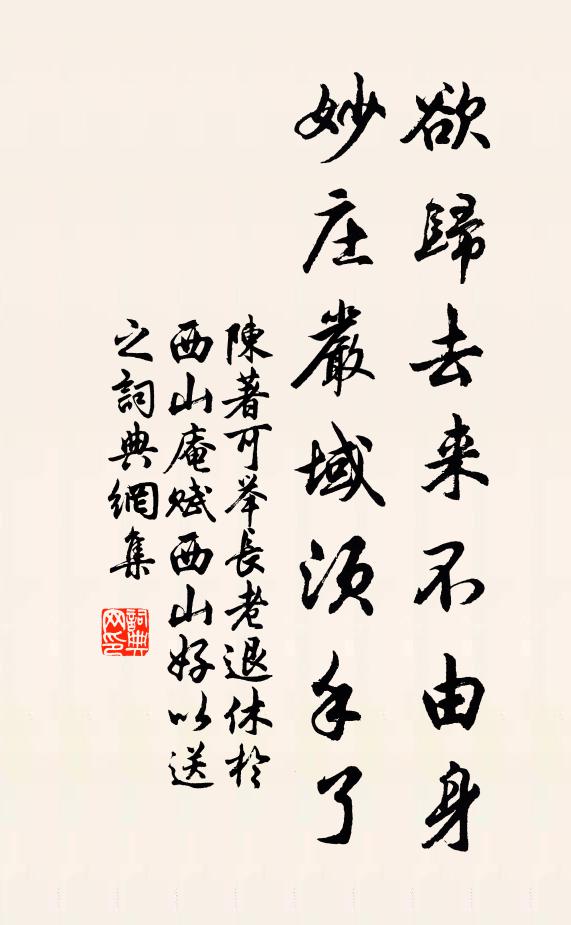 欲歸去来不由身
妙庄嚴域須手了
陳著可举長老退休於
西山庵赋西山好以送
之詞典網集
詞典
网印